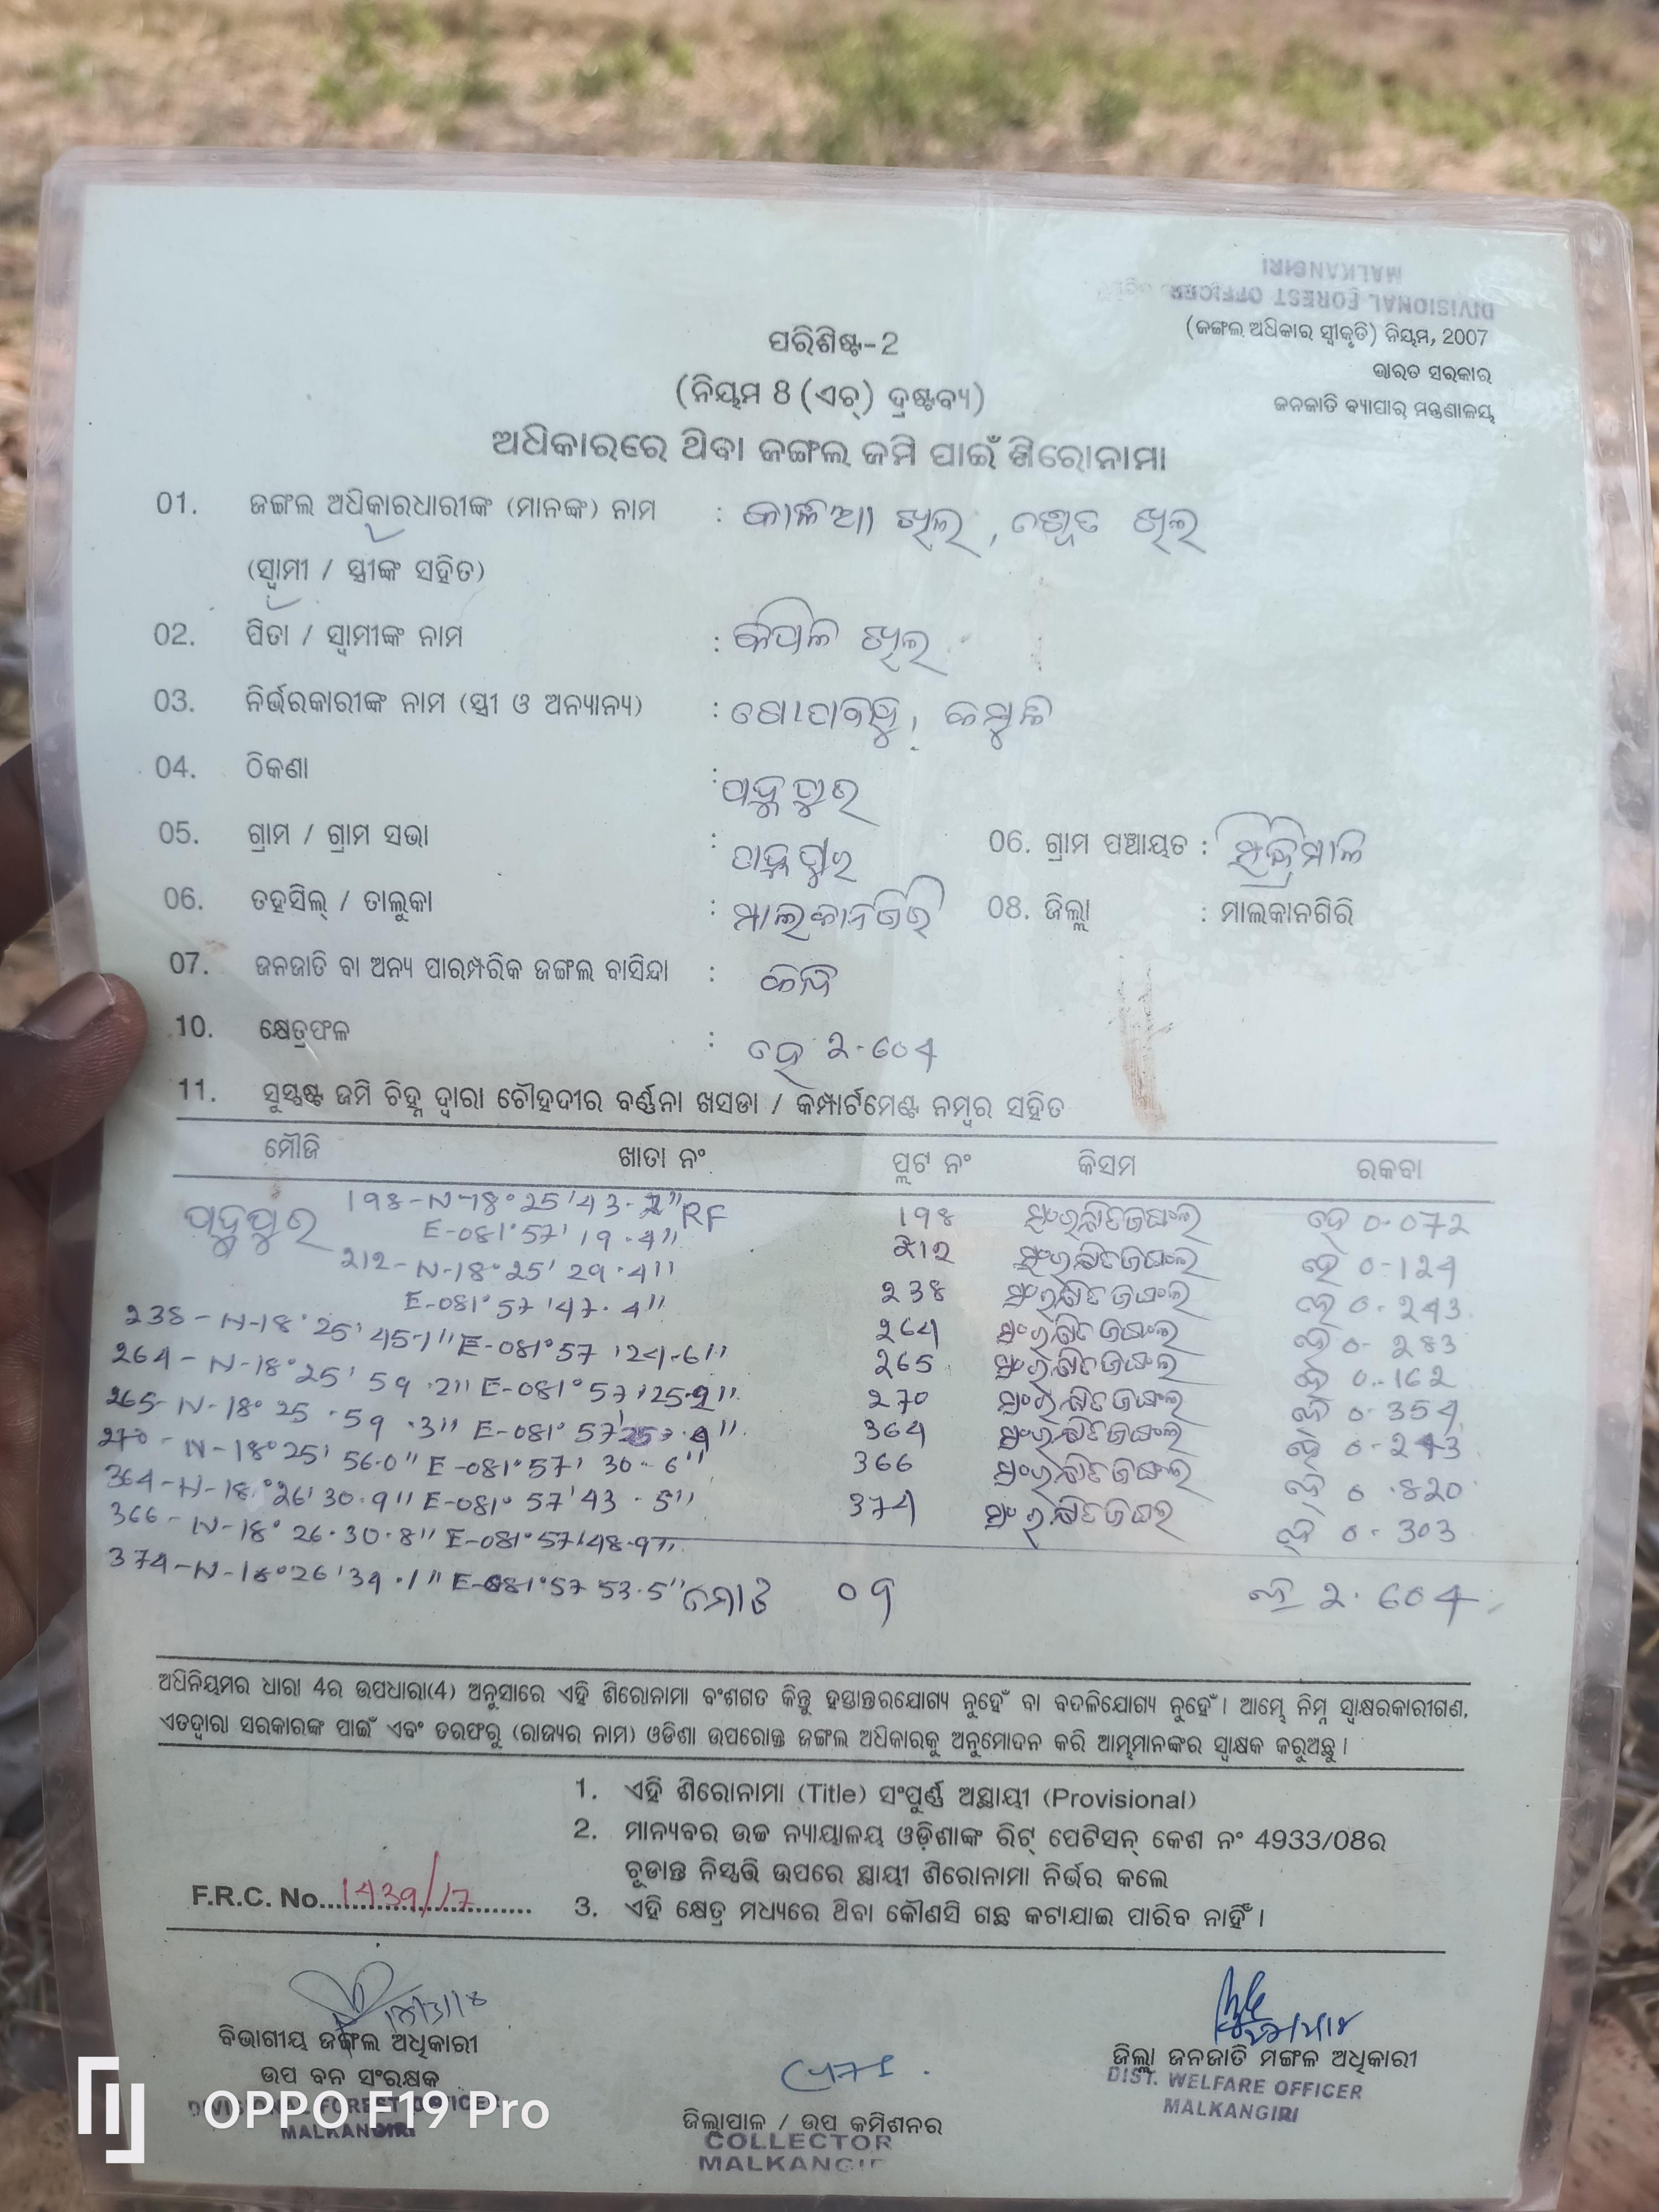 DIVISIONAL FOREST OFFICER
MALKANGIRI
(ଜଙ୍ଗଲ ଅଧିକାର ସ୍ୱୀକୃତି) ନିୟମ, 2007
ଭାରତ ସରକାର
ଜନଜାତି ବ୍ୟାପାର ମନ୍ତ୍ରଣାଳୟ
ପରିଶିଷ୍ଟ-2
(ନିୟମ 8 (ଏଚ୍) ଦ୍ରଷ୍ଟବ୍ୟ)
ଅଧିକାରରେ ଥିବା ଜଙ୍ଗଲ ଜମି ପାଇଁ ଶିରୋନାମା
01. ଜଙ୍ଗଲ ଅଧିକାରଧାରୀଙ୍କ (ମାନଙ୍କ) ନାମ :
(ସ୍ୱାମୀ / ସ୍ତ୍ରୀଙ୍କ ସହିତ)
02. ପିତା / ସ୍ୱାମୀଙ୍କ ନାମ :
03. ନିର୍ଭରକାରୀଙ୍କ ନାମ (ସ୍ତ୍ରୀ ଓ ଅନ୍ୟାନ୍ୟ) :
04. ଠିକଣା :
05. ଗ୍ରାମ / ଗ୍ରାମ ସଭା : 06. ଗ୍ରାମ ପଞ୍ଚାୟତ :
06. ତହସିଲ୍ / ତାଲୁକା : ମାଲକାନଗିରି 08. ଜିଲ୍ଲା : ମାଲକାନଗିରି
07. ଜନଜାତି ବା ଅନ୍ୟ ପାରମ୍ପରିକ ଜଙ୍ଗଲ ବାସିନ୍ଦା :
10. କ୍ଷେତ୍ରଫଳ : ହେ 2.604
11. ସୁସ୍ପଷ୍ଟ ଜମି ଚିହ୍ନ ଦ୍ୱାରା ଚୌହଦୀର ବର୍ଣ୍ଣନା ଖସଡା / କମ୍ପାର୍ଟମେଣ୍ଟ ନମ୍ବର ସହିତ
ମୌଜି ଖାତା ନଂ ପ୍ଲଟ ନଂ କିସମ ରକବା
198-N-18°25'43. RF 198 ସଂରକ୍ଷିତ ଜଙ୍ଗଲ ହେ 0.072
E-081°57'19.4"
212-N-18°25'29.4" 212 ସଂରକ୍ଷିତ ଜଙ୍ଗଲ ହେ 0.124
E-081°57'47.4" 238 ସଂରକ୍ଷିତ ଜଙ୍ଗଲ ହେ 0.243
238-N-18°25'45.1" E-081°57'24.6" 264 ସଂରକ୍ଷିତ ଜଙ୍ଗଲ ହେ 0.283
264-N-18°25'59.2" E-081°57'25.9" 265 ସଂରକ୍ଷିତ ଜଙ୍ଗଲ ହେ 0.162
265-N-18°25.59.3" E-081°57' 270 ସଂରକ୍ଷିତ ଜଙ୍ଗଲ ହେ 0.354
270-N-18°25'56.0" E-081°57'30.6" 364 ସଂରକ୍ଷିତ ଜଙ୍ଗଲ ହେ 0.243
364-N-18°26'30.9" E-081°57'43.5" 366 ସଂରକ୍ଷିତ ଜଙ୍ଗଲ ହେ 0.820
366-N-18°26.30.8" E-081°57'48.9" 374 ସଂରକ୍ଷିତ ଜଙ୍ଗଲ ହେ 0.303
374-N-18°26'39.1" E-081°57 53.5" ମୋଟ ୦୨ ହେ 2.604
ଅଧିନିୟମର ଧାରା 4ର ଉପଧାରା(4) ଅନୁସାରେ ଏହି ଶିରୋନାମା ବଂଶଗତ କିନ୍ତୁ ହସ୍ତାନ୍ତରଯୋଗ୍ୟ ନୁହେଁ ବା ବଦଳିଯୋଗ୍ୟ ନୁହେଁ। ଆମ୍ଭେ ନିମ୍ନ ସ୍ୱାକ୍ଷରକାରୀଗଣ,
ଏତଦ୍ୱାରା ସରକାରଙ୍କ ପାଇଁ ଏବଂ ତରଫରୁ (ରାଜ୍ୟର ନାମ) ଓଡିଶା ଉପରୋକ୍ତ ଜଙ୍ଗଲ ଅଧିକାରକୁ ଅନୁମୋଦନ କରି ଆମ୍ଭମାନଙ୍କର ସ୍ୱାକ୍ଷକ କରୁଅଛୁ।
1. ଏହି ଶିରୋନାମା (Title) ସଂପୂର୍ଣ୍ଣ ଅସ୍ଥାୟୀ (Provisional)
2. ମାନ୍ୟବର ଉଚ୍ଚ ନ୍ୟାୟାଳୟ ଓଡ଼ିଶାଙ୍କ ରିଟ୍ ପେଟିସନ୍ କେଶ ନଂ 4933/08ର
ଚୂଡାନ୍ତ ନିସ୍ପତ୍ତି ଉପରେ ସ୍ଥାୟୀ ଶିରୋନାମା ନିର୍ଭର କଲେ
F.R.C. No. 1439/17
3. ଏହି କ୍ଷେତ୍ର ମଧ୍ୟରେ ଥିବା କୌଣସି ଗଛ କଟାଯାଇ ପାରିବ ନାହିଁ।
ବିଭାଗୀୟ ଜଙ୍ଗଲ ଅଧିକାରୀ
ଉପ ବନ ସଂରକ୍ଷକ
DIVISIONAL FOREST OFFICER
MALKANGIRI
ଜିଲ୍ଲାପାଳ / ଉପ କମିଶନର
COLLECTOR
MALKANGIRI
ଜିଲ୍ଲା ଜନଜାତି ମଙ୍ଗଳ ଅଧିକାରୀ
DIST. WELFARE OFFICER
MALKANGIRI
OPPO F19 Pro